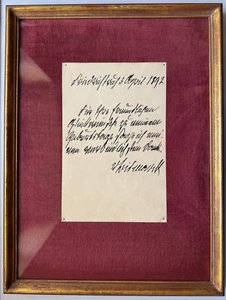 Friedrichsruh 3 April 1892
Für Ihre freundlichen
Glückwünsche zu meinem
Geburtstage sage ich mei-
nen verbindlichsten Dank.
v Bismarck